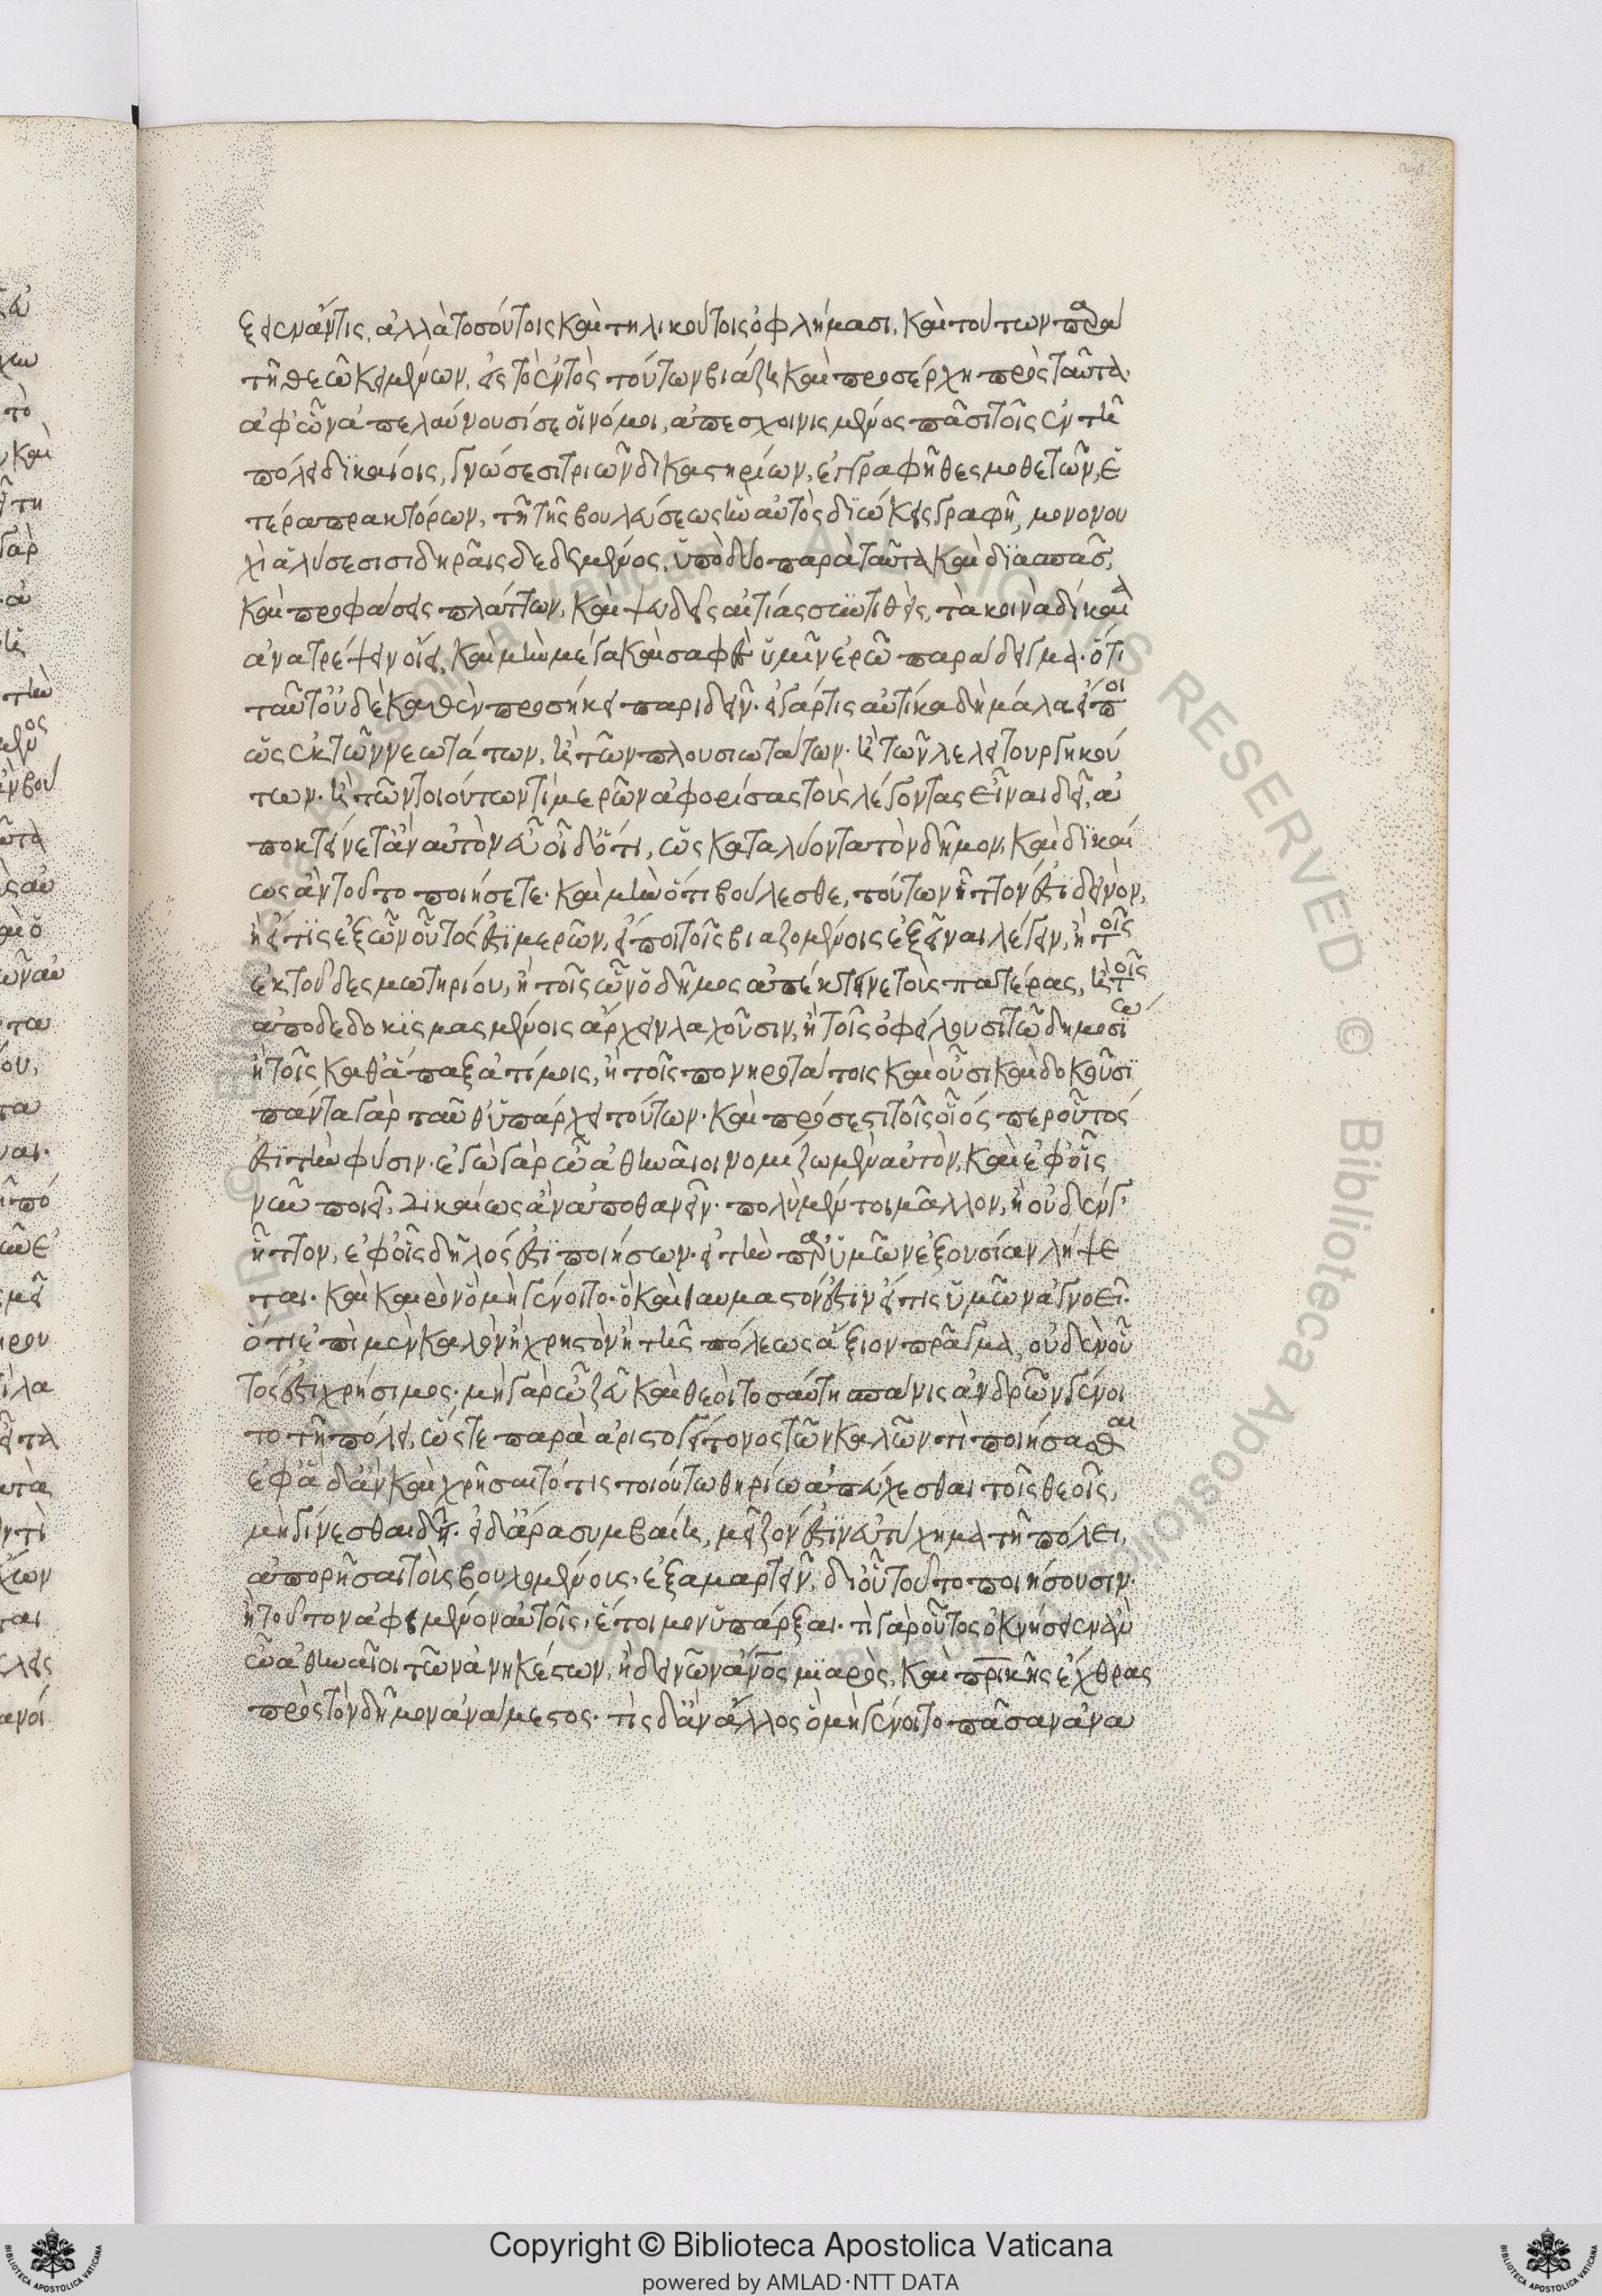 ξειεν ἄν τις, ἀλλὰ τοσούτοις καὶ τηλικούτοις ὀφλήμασι, καὶ τούτων παρὰ
τῇ θεῷ κειμένων, εἰς τὸ ἐντὸς τούτων βιάζῃ καὶ προσέρχῃ πρὸς ταῦτα.
ἀφ' ὧν ἀπελαύνουσί σε οἱ νόμοι, ἀπεσχοινισμένος πᾶσι τοῖς ἐν τῇ
πόλει δικαίοις, γνώσεσι τριῶν δικαστηρίων, ἐγγραφῇ θεσμοθετῶν, ἑ
τέρα πρακτόρων, τῇ τῆς βουλεύσεως ἣν αὐτὸς διώκεις γραφῇ, μονονου
χὶ ἁλύσεσι σιδηραῖς δεδεμένος, ὑποδύῃ παρὰ ταῦτα καὶ διασπᾷς,
καὶ προφάσεις πλάττων, καὶ ψευδεῖς αἰτίας συντιθεὶς, τὰ κοινὰ δίκαια
ἀνατρέψειν οἴει, καὶ μὴν μέγα καὶ σαφὲς ὑμῖν ἐρῶ παράδειγμα. ὅτι
ταῦτ' οὐδὲ καθ' ἓν προσήκει παριδεῖν. εἰ γάρ τις αὐτίκα δὴ μάλα εἴποι
ὡς ἐκ τῶν νεωτάτων, ἢ τῶν πλουσιωτάτων. ἢ τῶν λελειτουργηκό
των. ἢ τῶν τοιούτων τι μερῶν ἀφορίσας τοὺς λέγοντας εἶναι δεῖ, ἀ
ποκτείνετ' ἂν αὐτὸν εὖ οἶδ' ὅτι, ὡς καταλύοντα τὸν δῆμον, καὶ δικαί
ως ἂν τοῦτο ποιήσετε. καὶ μὴν ὅτι βούλεσθε, τούτων ἧττον ἐστὶ δεινὸν,
ἢ εἴ τις ἐξ ὧν οὗτός ἐστι μερῶν, εἴποι τοῖς βιαζομένοις ἐξεῖναι λέγειν, ἢ τοῖς
ἐκ τοῦ δεσμωτηρίου, ἢ τοῖς ὧν ὁ δῆμος ἀπέκτεινε τοὺς πατέρας, ἢ τοῖς
ἀποδεδοκιμασμένοις ἄρχειν λαχοῦσιν, ἢ τοῖς ὀφείλουσι τῷ δημοσίῳ
ἢ τοῖς καθάπαξ ἀτίμοις, ἢ τοῖς πονηροτάτοις καὶ οὖσι καὶ δοκοῦσι
πάντα γὰρ ταῦθ' ὑπάρχει τούτων. καὶ πρόσεστι τοῖς οἷός περ οὗτος
ἐστι τὴν φύσιν. ἐγὼ γὰρ ὦ ἀθηναῖοι νομίζω μὲν αὐτὸν, καὶ ἐφ' οἷς
νῦν ποιεῖ, δικαίως ἂν ἀποθανεῖν. πολὺ μέντοι μᾶλλον, ἢ οὐδέν γ'
ἧττον, ἐφ' οἷς δῆλός ἐστι ποιήσων. εἰ τὴν παρ' ὑμῶν ἐξουσίαν λήψε
ται. καὶ καιρὸν ὃ μὴ γένοιτο. ὃ καὶ θαυμαστόν ἐστιν εἴ τις ὑμῶν ἀγνοεῖ.
ὅτι ἐπὶ μὲν καλὸν ἢ χρηστὸν ἢ τῆς πόλεως ἄξιον πρᾶγμα, οὐδὲν οὗ
τός ἐστι χρήσιμος. μὴ γὰρ ὦ ζεῦ καὶ θεοὶ τοσαύτη σπάνις ἀνδρῶν γένοι
το τῇ πόλει, ὥστε παρὰ ἀριστογείτονος τῶν καλῶν τι ποιήσασθαι
ἐφ' ἃ δ' ἂν καὶ χρήσαιτό τις τοιούτῳ θηρίῳ ἀπεύχεσθαι τοῖς θεοῖς,
μὴ γίνεσθαι δεῖ. εἰ δ' ἄρα συμβαίη, μεῖζόν ἐστιν εὐτύχημα τῇ πόλει,
ἀπορῆσαι τοῖς βουλομένοις, ἐξαμαρτεῖν, δι' οὗ τοῦτο ποιήσουσιν.
ἢ τοῦτον ἀφειμένον αὐτοῖς, ἕτοιμον ὑπάρξαι. τί γὰρ οὗτος ὀκνήσειεν ἂν
ὦ ἀθηναῖοι τῶν ἀνηκέστων, ἢ δεινῶν ἄνος μιαρὸς, καὶ πρικῆς ἔχθρας
πρὸς τὸν δῆμον ἀνάμεστος. τίς δ' ἂν ἄλλος ὃ μὴ γένοιτο πᾶσαν ἀνα
Copyright © Biblioteca Apostolica Vaticana
powered by AMLAD·NTT DATA